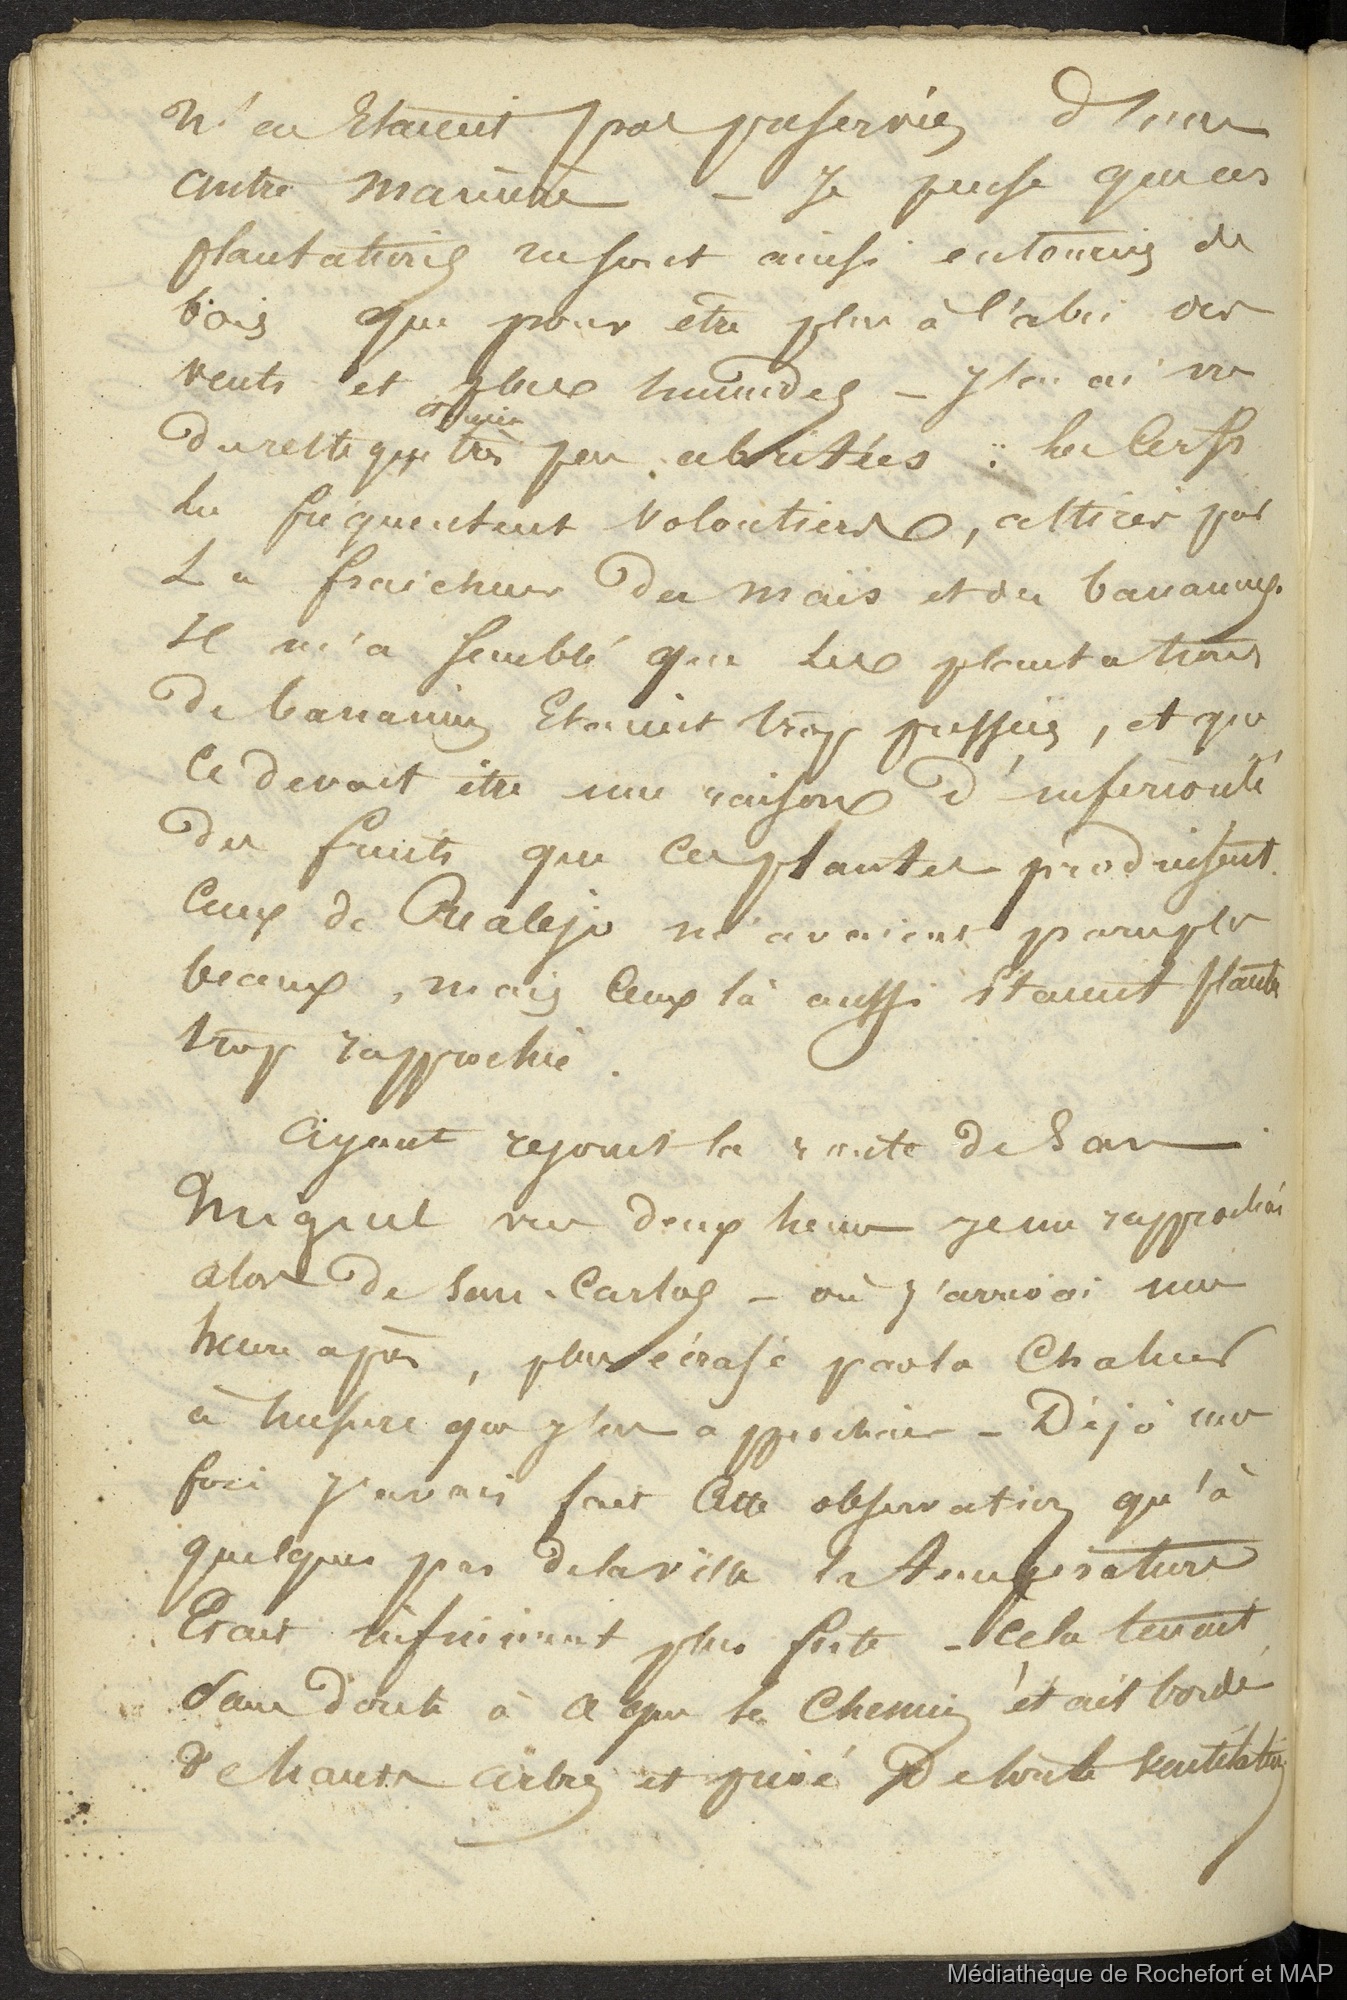 n'en Etaient pas préservées d'une
autre manière — Je pense que ces
plantations ne sont ainsi entourées de
bois que pour être plus à l'abri des
vents et plus humides — J'en ai vu
du reste qui étaient
très peu abritées : les Cerfs
les fréquentent volontiers, attirés par
La fraicheur des maïs et des bananiers.
Il m'a semblé que Les plantations
de bananiers Etaient trop pressées, et que
Ce devait être une raison d'infériorité
des fruits que Ces plantes produisent.
Ceux de Realejo m'avaient paru plus
beaux, mais Ceux là aussi étaient plantés
trop rapprochés.
Ayant rejoint la route de San
Miguel vers deux heures je me rapprochai
alors de San-Carlos — où j'arrivai une
heure après, plus écrasé par la Chaleur
à mesure que j'en approchais — Déjà une
fois j'avais fait Cette observation qu'à
quelques pas de la ville la température
Etait infiniment plus forte — Cela tenait
sans doute à ce que le Chemin était bordé
de hauts arbres et privé de toute ventilation
Médiathèque de Rochefort et MAP